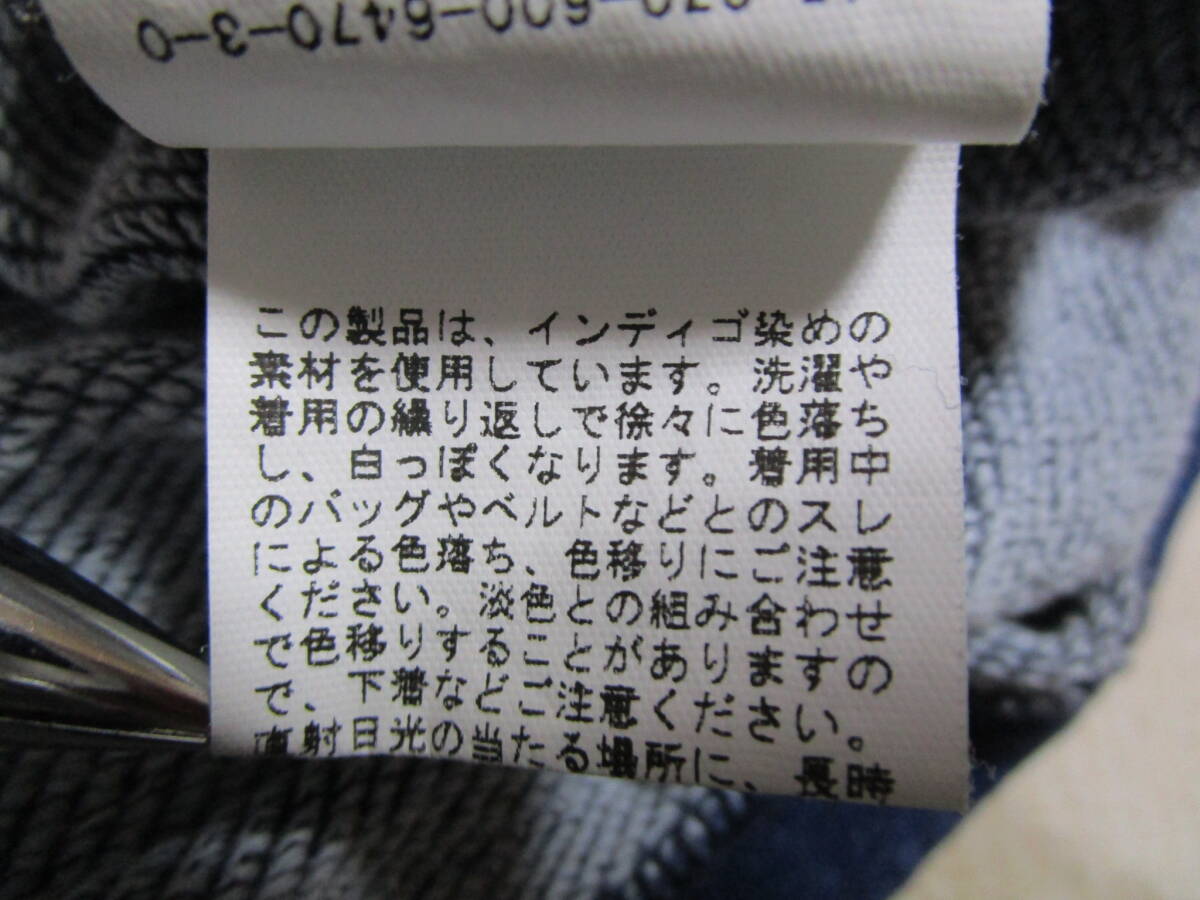 670-600-6470-3-0
この製品は、インディゴ染めの
素材を使用しています。洗濯や
着用の繰り返しで徐々に色落ち
し、白っぽくなります。着用中
のバッグやベルトなどとのスレ
による色落ち、色移りにご注意
ください。淡色との組み合わせ
で色移りすることがありますの
で、下着などご注意ください。
直射日光の当たる場所に、長時